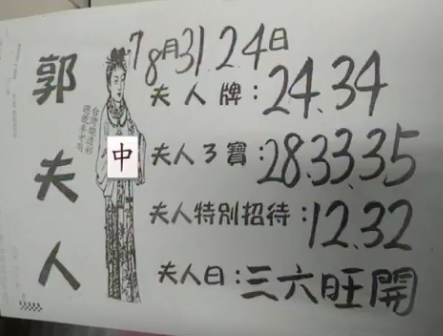 郭夫人
7 8月31.24日
夫人牌:24.34
夫人3寶:28.33.35
夫人特別招待:12.32
夫人日:三六旺開
中